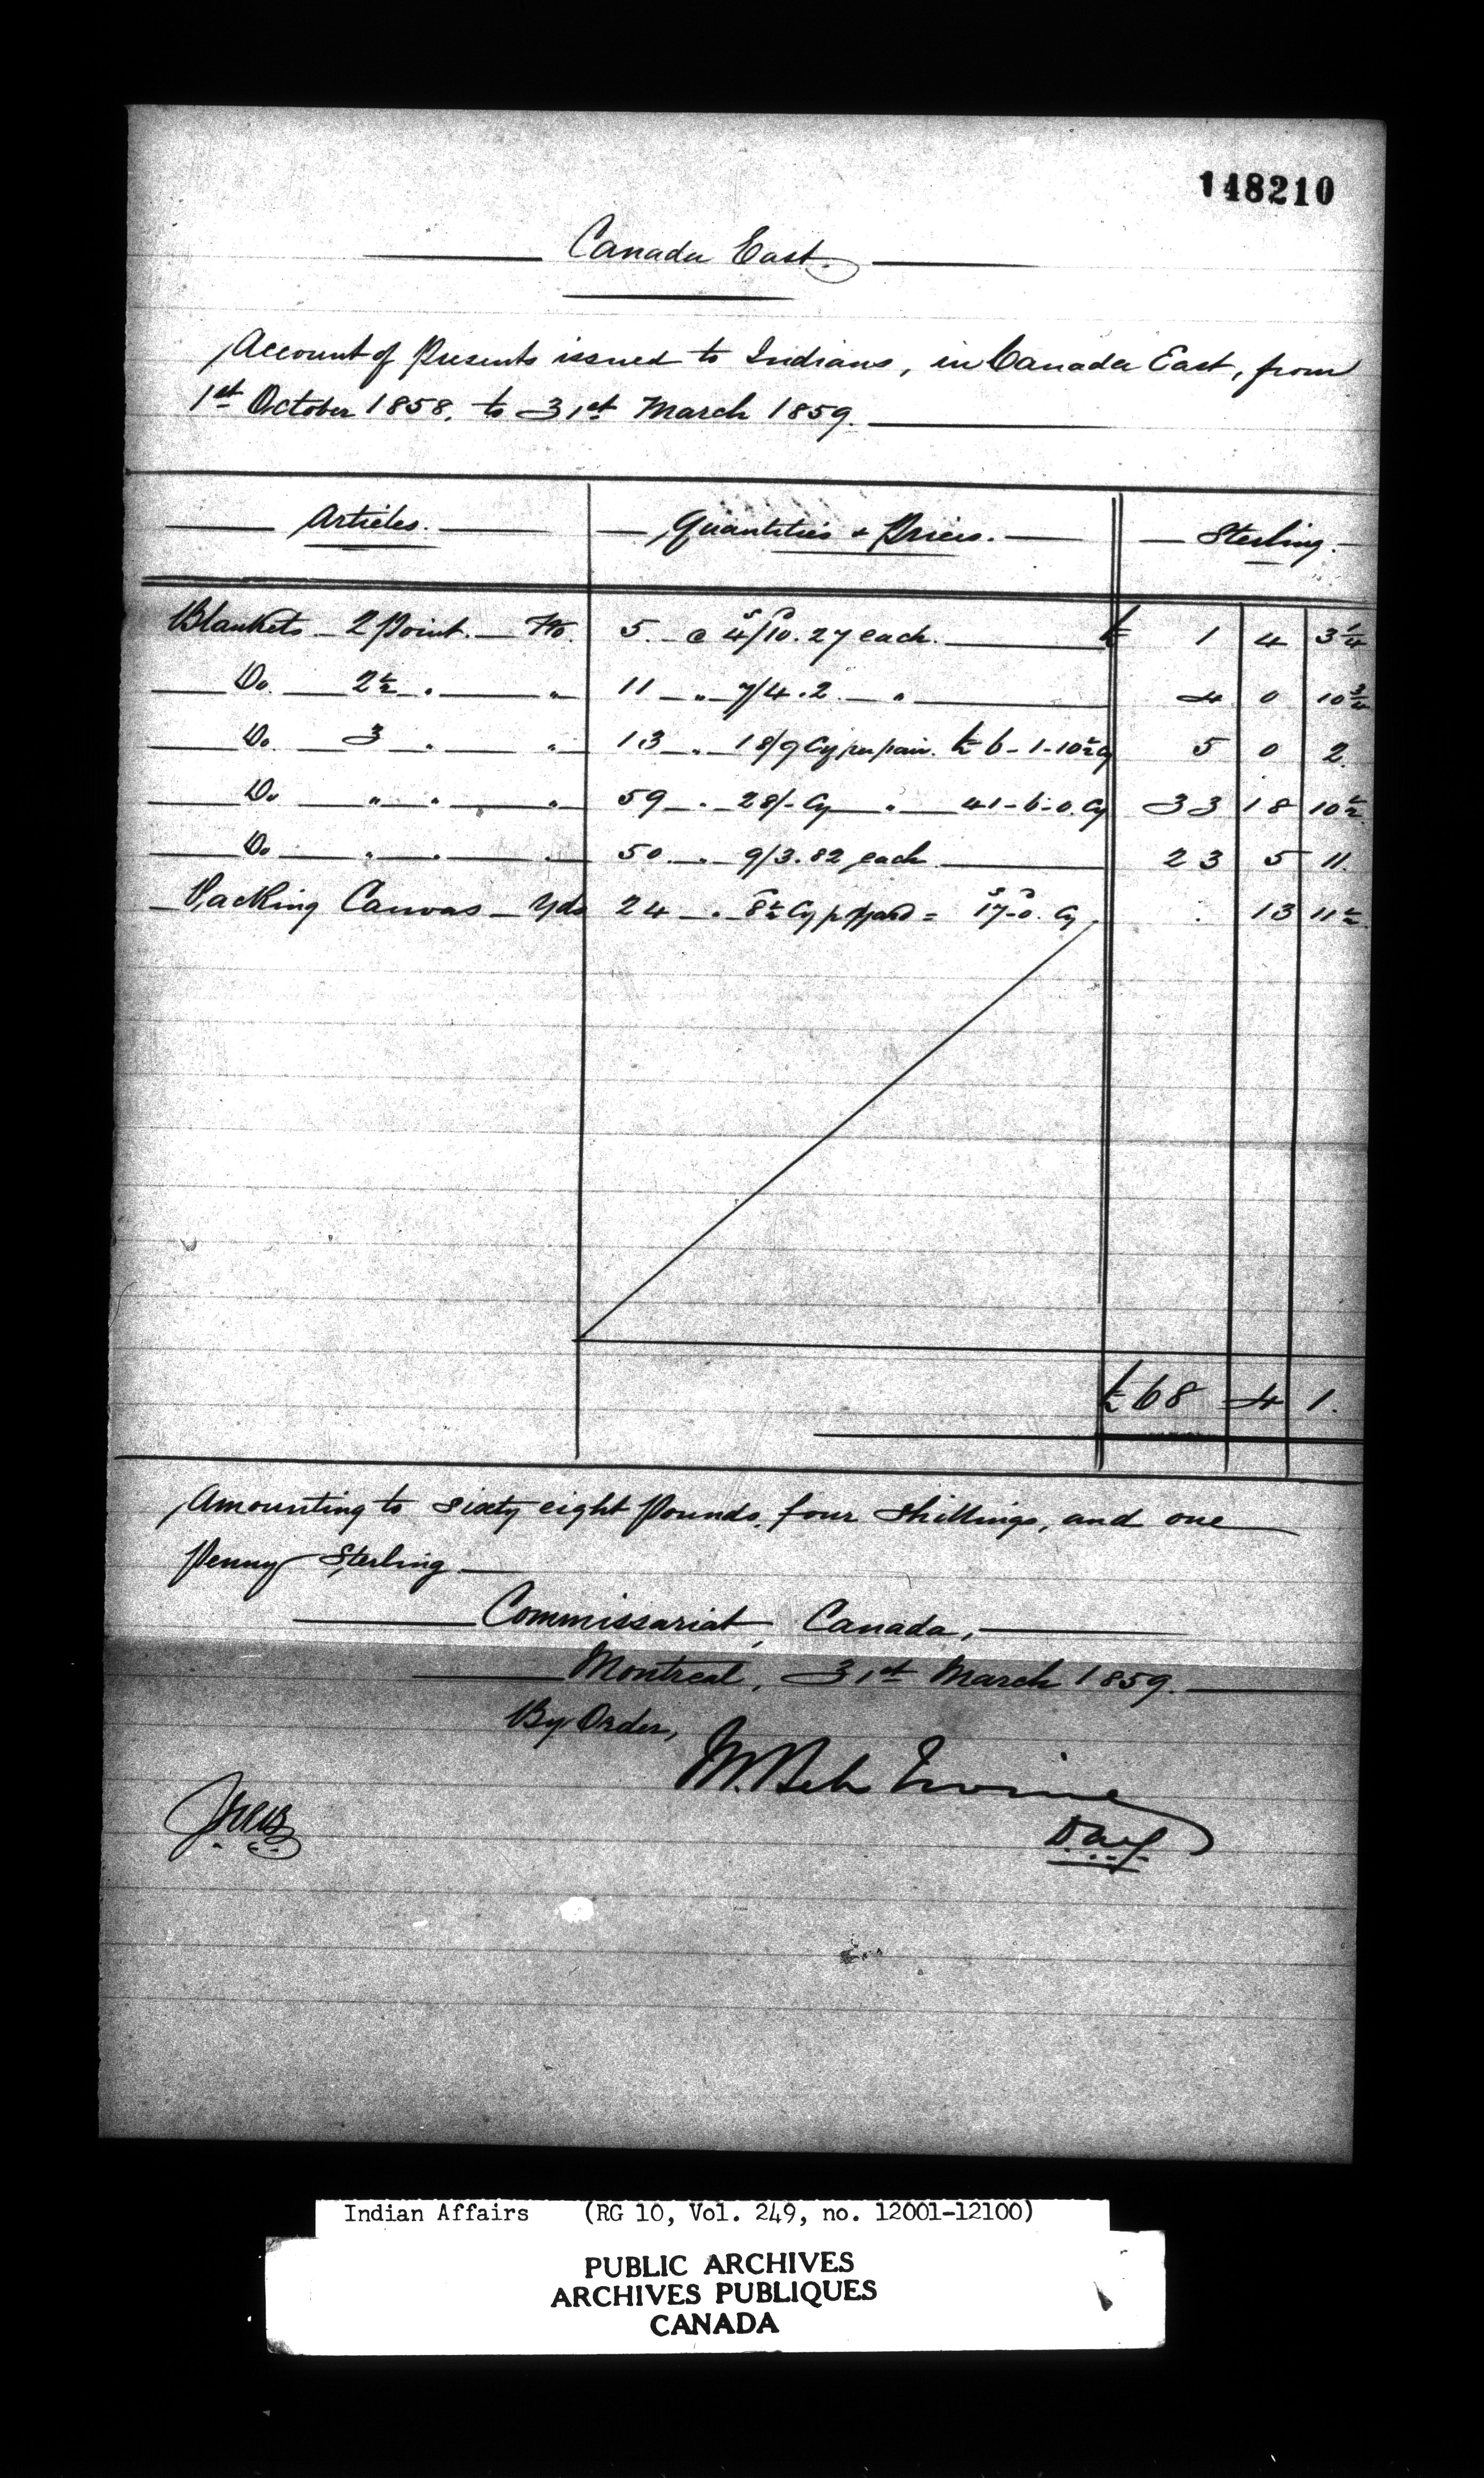 148210
Canada East.
Account of Presents issued to Indians, in Canada East, from
1st October 1858, to 31st March 1859.
Articles. Quantities & Prices. Sterling.
Blankets 2 Point. No. 5. @ 4s/10.27d each. £ 1 4 3 1/4
Do. 2 1/2 " " 11 " 7/4.2 " 4 0 10 3/4
Do. 3 " " 13 " 18/9 Cy per pair. £6-1-10 1/2 Cy 5 0 2.
Do " " " 59 " 28/- Cy " 41-6-0. Cy 33 18 10 1/2
Do " " " 50 " 9/3.82 each 23 5 11.
Packing Canvas Yds 24 " 8 1/2d Cy p Yard = 17s-0d. Cy . 13 11 1/2
£68 4 1.
Amounting to sixty eight Pounds, four shillings, and one
Penny Sterling
Commissariat, Canada,
Montreal, 31st March 1859.
By Order,
Irvine
Indian Affairs (RG 10, Vol. 249, no. 12001-12100)
PUBLIC ARCHIVES
ARCHIVES PUBLIQUES
CANADA